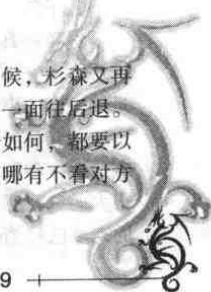 候，杉森又再
一面往后退。
如何，都要以
哪有不看对方
9